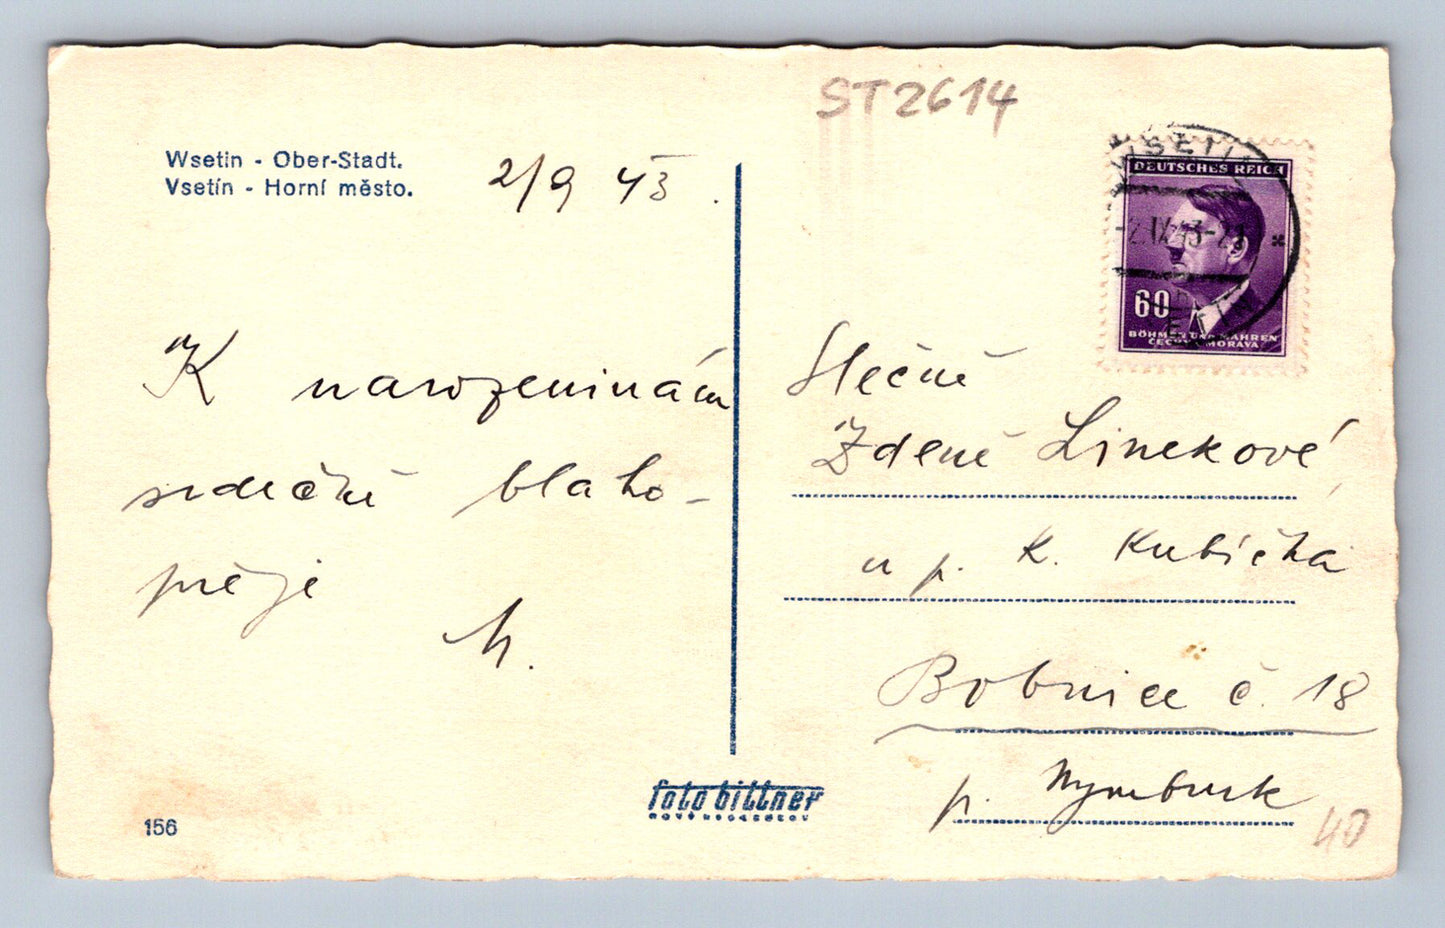 ST2614
Wsetin - Ober-Stadt.
Vsetín - Horní město.
2/9 43.
K narozeninám
srdečně blaho-
přeje
M.
WSETIN
DEUTSCHES REICH
-2.IX.43-21
60
BÖHMEN UND MÄHREN
ČECHY A MORAVA
Slečně
Zdeně Linekové,
u p. K. Kubíčka
Bobnice č. 18
p. Nymburk
40
foto bittner
156